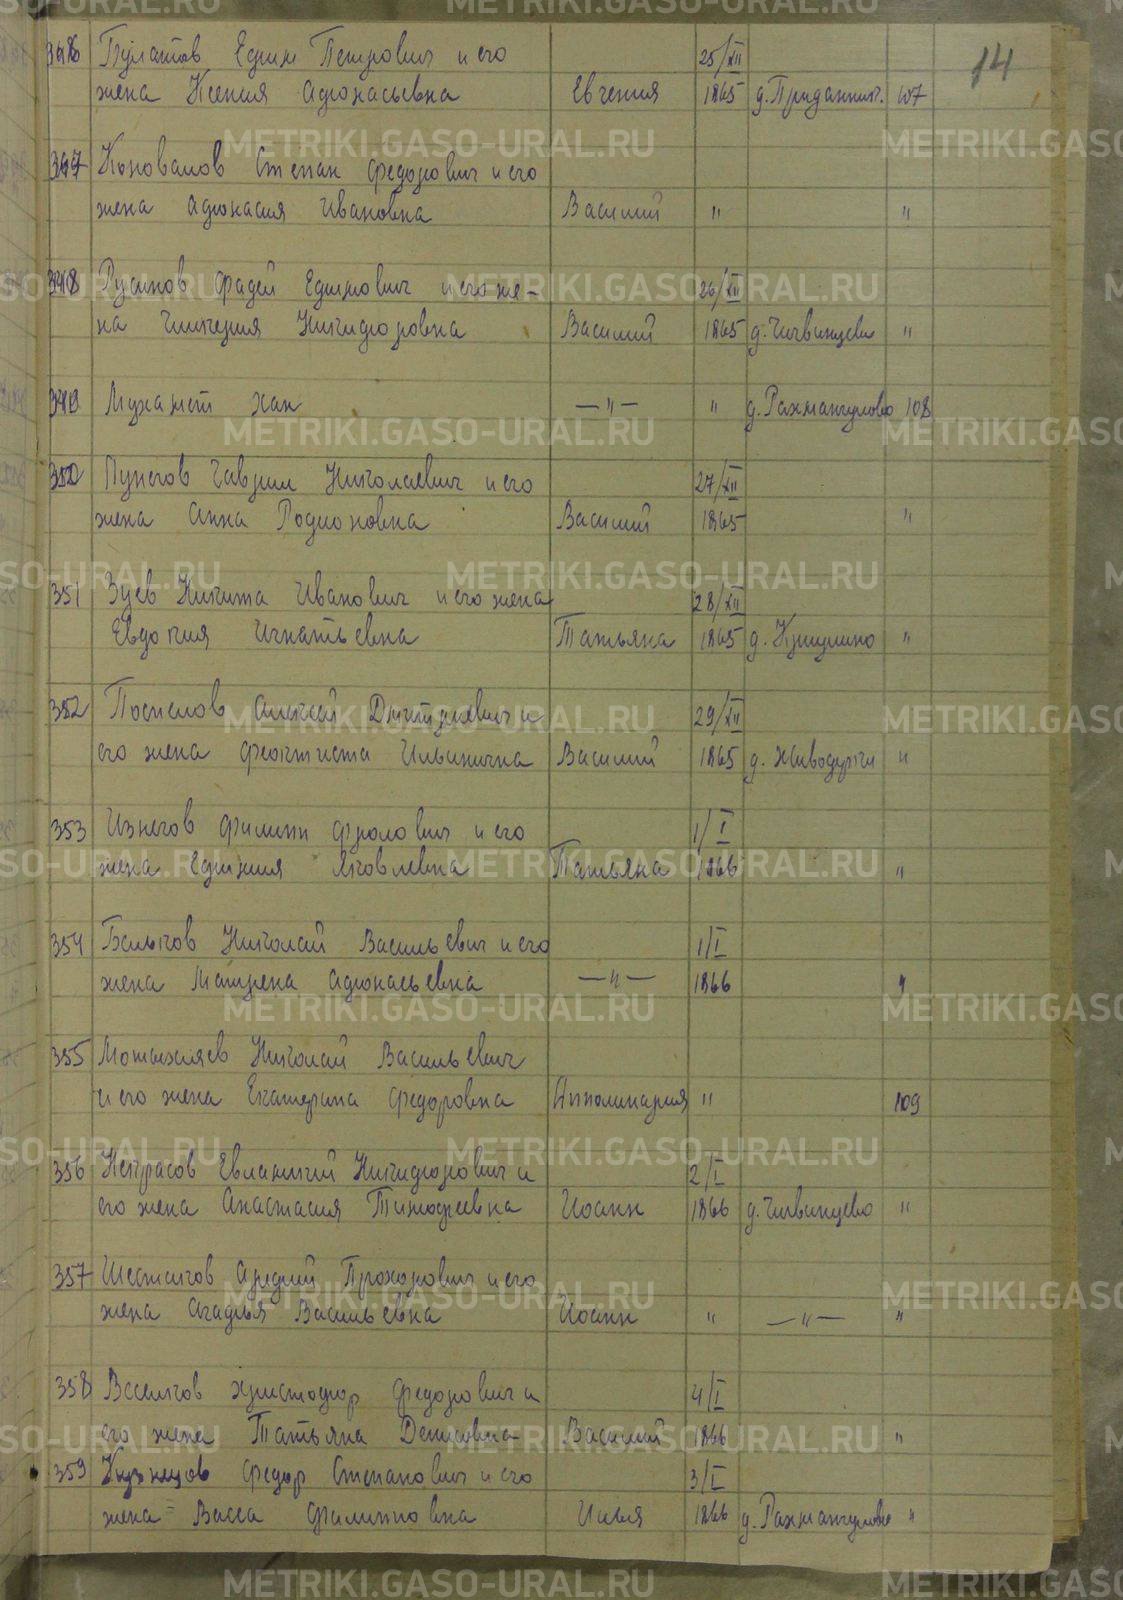 14
346 Булатов Ефим Петрович и его 25/XII
жена Ксения Афонасьевна Евгения 1865 д. Приданник. 107
347 Коновалов Степан Федорович и его
жена Афонасия Ивановна Василий " "
348 Русинов Фадей Ефимович и его же- 26/XII
на Гликерия Никифоровна Василий 1865 д. Чигвинцева "
349 Мухамет хан —"— " д. Рахмангулово 108
350 Пунегов Гаврил Николаевич и его 27/XII
жена Анна Родионовна Василий 1865 "
351 Зуев Никита Иванович и его жена 28/XII
Евдокия Игнатьевна Татьяна 1865 д. Криулино "
352 Поспелов Алексей Дмитриевич и 29/XII
его жена Феоктиста Ильинична Василий 1865 д. Живодерки "
353 Изнегов Филипп Фролович и его 1/I
жена Ефимия Яковлевна Татьяна 1866 "
354 Николай Васильевич и его 1/I
жена Матрена Афонасьевна —"— 1866 "
355 Николай Васильевич
и его жена Екатерина Федоровна Апполинария " 109
356 Некрасов Евлампий Никифорович и 2/I
его жена Анастасия Тимофеевна Иоанн 1866 д. Чигвинцево "
357 Шестаков Андрей Прохорович и его
жена Агафья Васильевна Иоанн " —"— "
358 Христофор Федорович и 4/I
его жена Татьяна Денисовна Василий 1866 "
359 Кузнецов Федор Степанович и его 3/I
жена Васса Филипповна Илья 1866 д. Рахмангулово "
METRIKI.GASO-URAL.RU